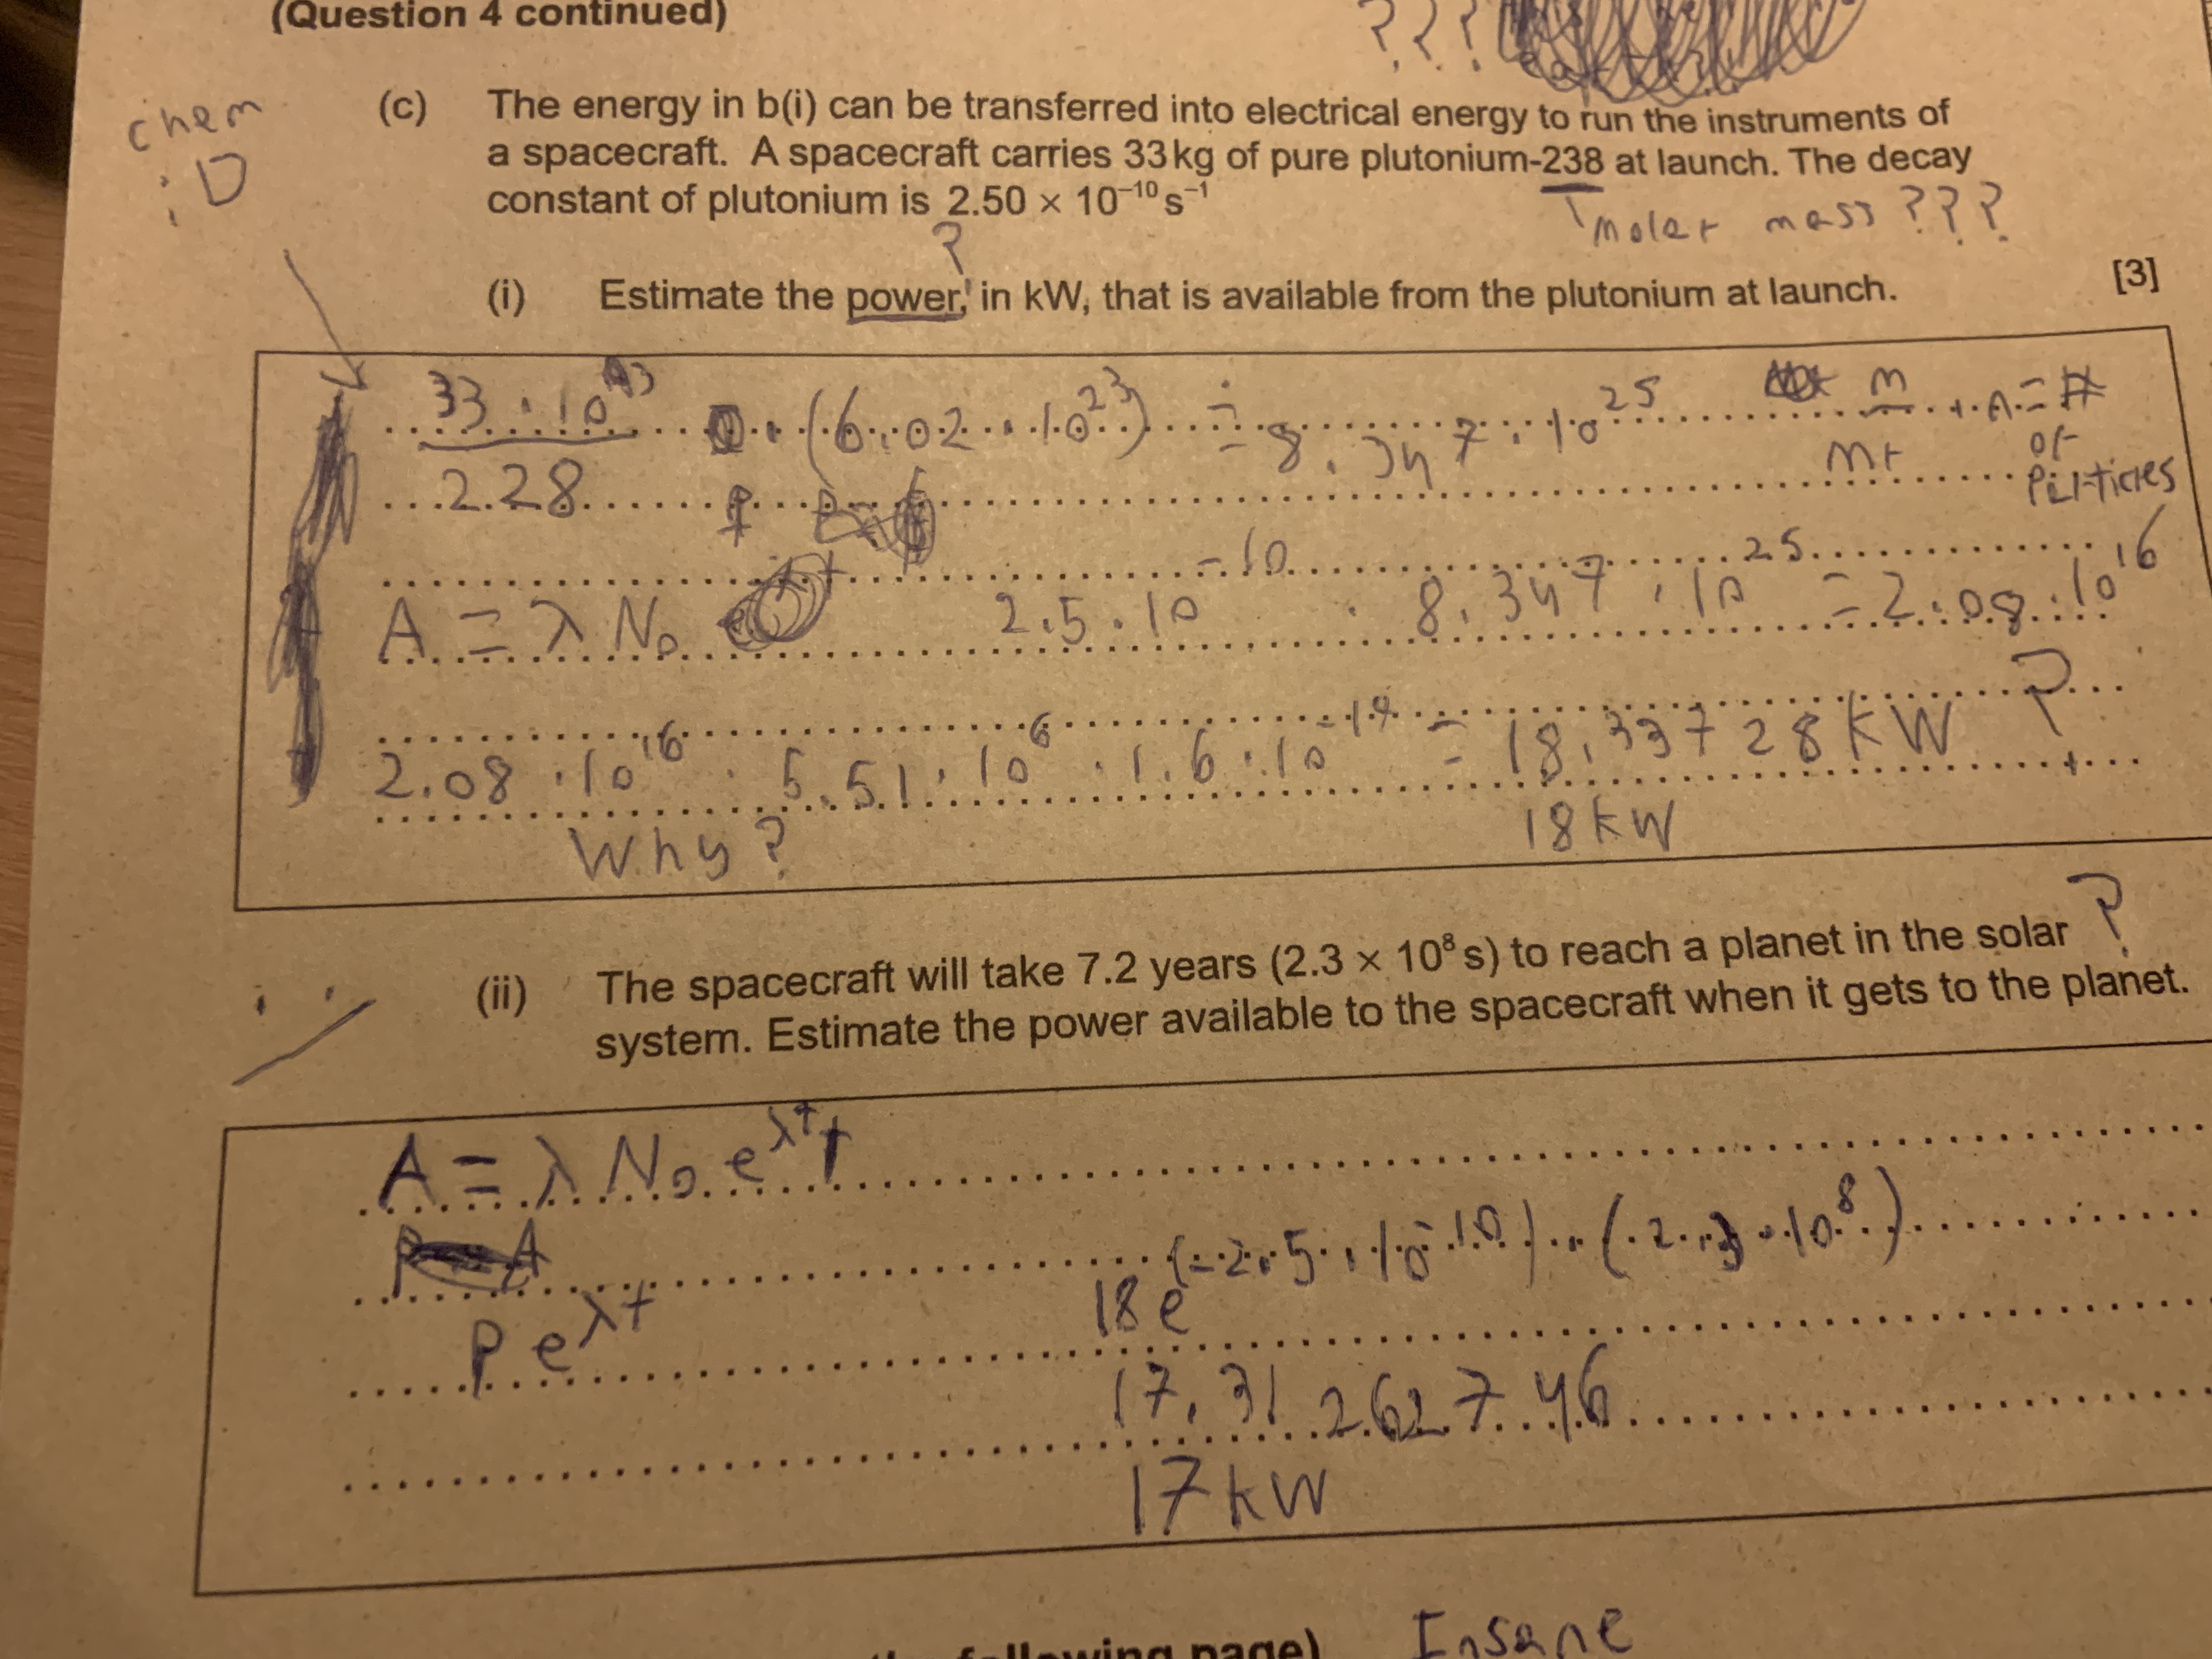 (Question 4 continued)
???
chem
:D
(c) The energy in b(i) can be transferred into electrical energy to run the instruments of
a spacecraft. A spacecraft carries 33 kg of pure plutonium-238 at launch. The decay
constant of plutonium is 2.50 × 10⁻¹⁰ s⁻¹
molar mass ???
?
(i) Estimate the power, in kW, that is available from the plutonium at launch. [3]
33 · 10³ / 228 · (6.02 · 10²³) = 8.347 · 10²⁵ m / Mr · A = # of particles
A = λ N₀ 2.5 · 10⁻¹⁰ · 8.347 · 10²⁵ = 2.08 · 10¹⁶
2.08 · 10¹⁶ · 5.51 · 10⁶ · 1.6 · 10⁻¹⁹ = 18.33728 kW
Why? 18 kW
?
(ii) The spacecraft will take 7.2 years (2.3 × 10⁸ s) to reach a planet in the solar
system. Estimate the power available to the spacecraft when it gets to the planet.
A = λ N₀ e
P e^λt 18 e^(-2.5 · 10⁻¹⁰) · (2.3 · 10⁸)
17.31262746
17 kW
following page)
Insane